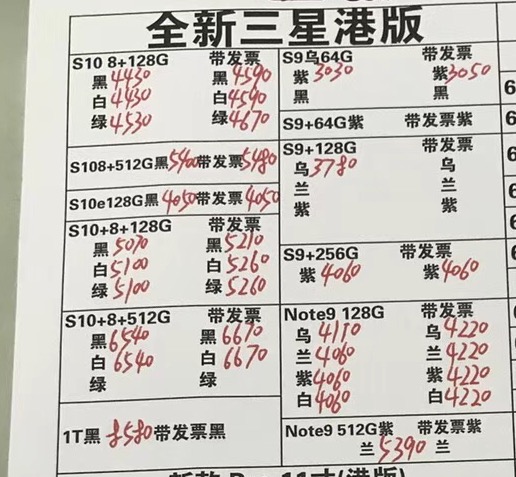 全新三星港版
S10 8+128G 带发票
黑 4430 黑 4590
白 4430 白 4590
绿 4530 绿 4670
S108+512G黑 5400 带发票 5480
S10e128G黑 4050 带发票 4050
S10+8+128G 带发票
黑 5070 黑 5210
白 5100 白 5260
绿 5100 绿 5260
S10+8+512G 带发票
黑 6540 黑 6670
白 6540 白 6670
绿 绿
1T黑 8580 带发票黑
S9乌64G 带发票
紫 3030 紫 3050
黑 黑
S9+64G紫 带发票紫
S9+128G 带发票
乌 3780 乌
兰 兰
紫 紫
S9+256G 带发票
紫 4060 紫 4060
Note9 128G 带发票
乌 4110 乌 4220
兰 4060 兰 4220
紫 4060 紫 4220
白 4060 白 4220
Note9 512G紫 带发票紫
兰 5390 兰